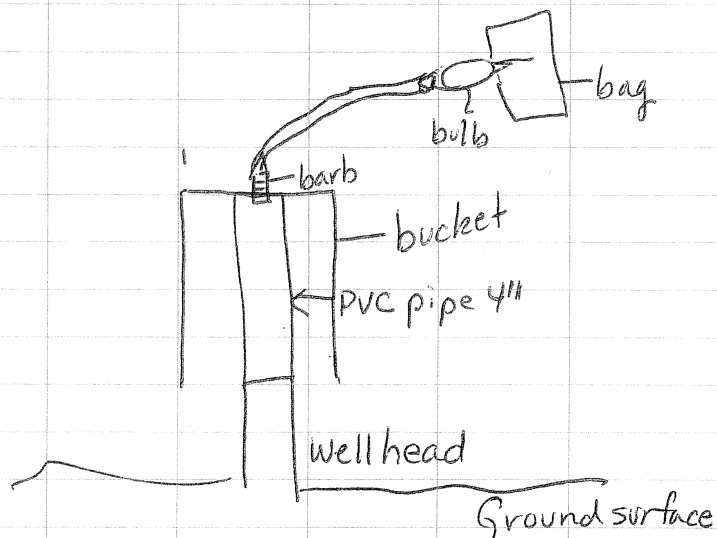 bag
bulb
barb
bucket
PVC pipe 4"
Wellhead
Ground surface